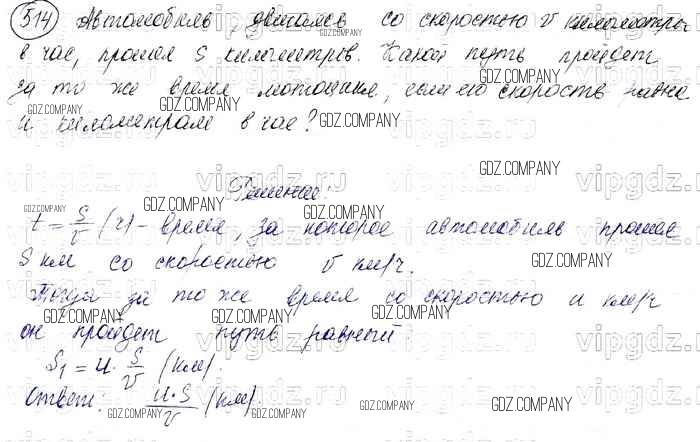 514 Автомобиль, двигаясь со скоростью v километры
в час, прошел S километров. Какой путь пройдет
за то же время мотоцикл, если его скорость равна
u километрам в час?
Решение:
t = S/v (ч) - время, за которое автомобиль прошел
S км со скоростью v км/ч.
Тогда за то же время со скоростью u км/ч
он пройдет путь равный
S₁ = u · S/v (км).
Ответ: u·S/v (км).